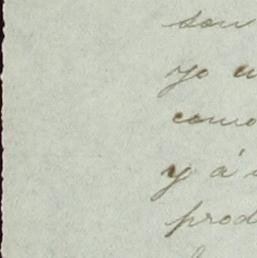 son
yo
como
y á
prod